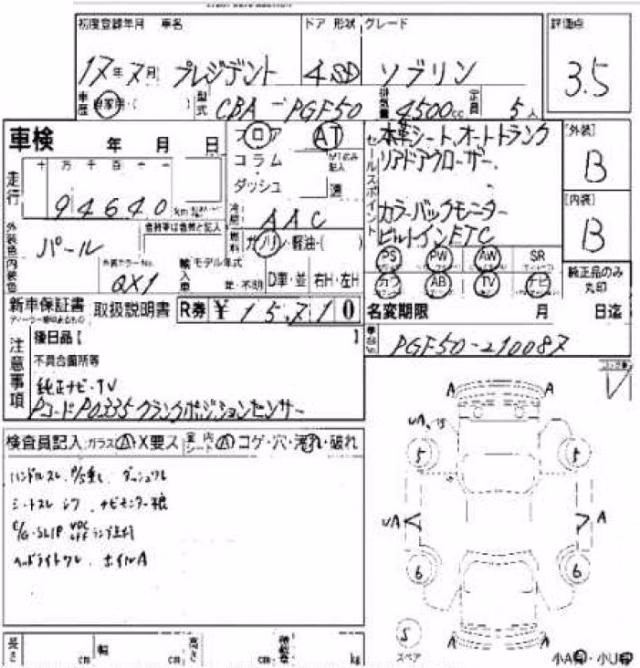 初度登録年月 車名 ドア 形状 グレード 評価点
17年7月 プレジデント 4 SD ソブリン 3.5
車歴 自家用・( ) 型式 CBA-PGF50 排気量 4500cc 定員 5人
車検 年 月 日
フロア AT
コラム
ダッシュ
走行 十万千百十一
94640 km
冷房 AAC
燃料 ガソリン・軽油・( )
外装色 パール
内装色 カラーNo. QX1
輸入車 モデル年式 年・不明 D車・並 右H・左H
セールスポイント
本革シート、オートトランク
リアドアクローザー、
カラーバックモニター
ビルトインETC
PS PW AW SR
カワ AB TV ナビ
[外装]
B
[内装]
B
純正品のみ
丸印
新車保証書 取扱説明書 R券 ¥15,710
名変期限 月 日迄
後日品【 】
車台No. PGF50-210087
注意事項
不具合箇所等
純正ナビ・TV
Pコード P0335 クランクポジションセンサー
検査員記入 ガラス A・X要ス 室内シート A コゲ・穴・汚れ・破れ
ハンドルスレ P/S重し ダッシュワレ
シートスレ シワ ナビモニター
E/G・SLIP VDC OFF ランプ点灯
ヘッドライトワレ ホイルA
A A
UA
5 5
UA A
6 6
5
スペア
A A
長さ cm 幅 cm 高さ cm 積載量 kg
小A・小U